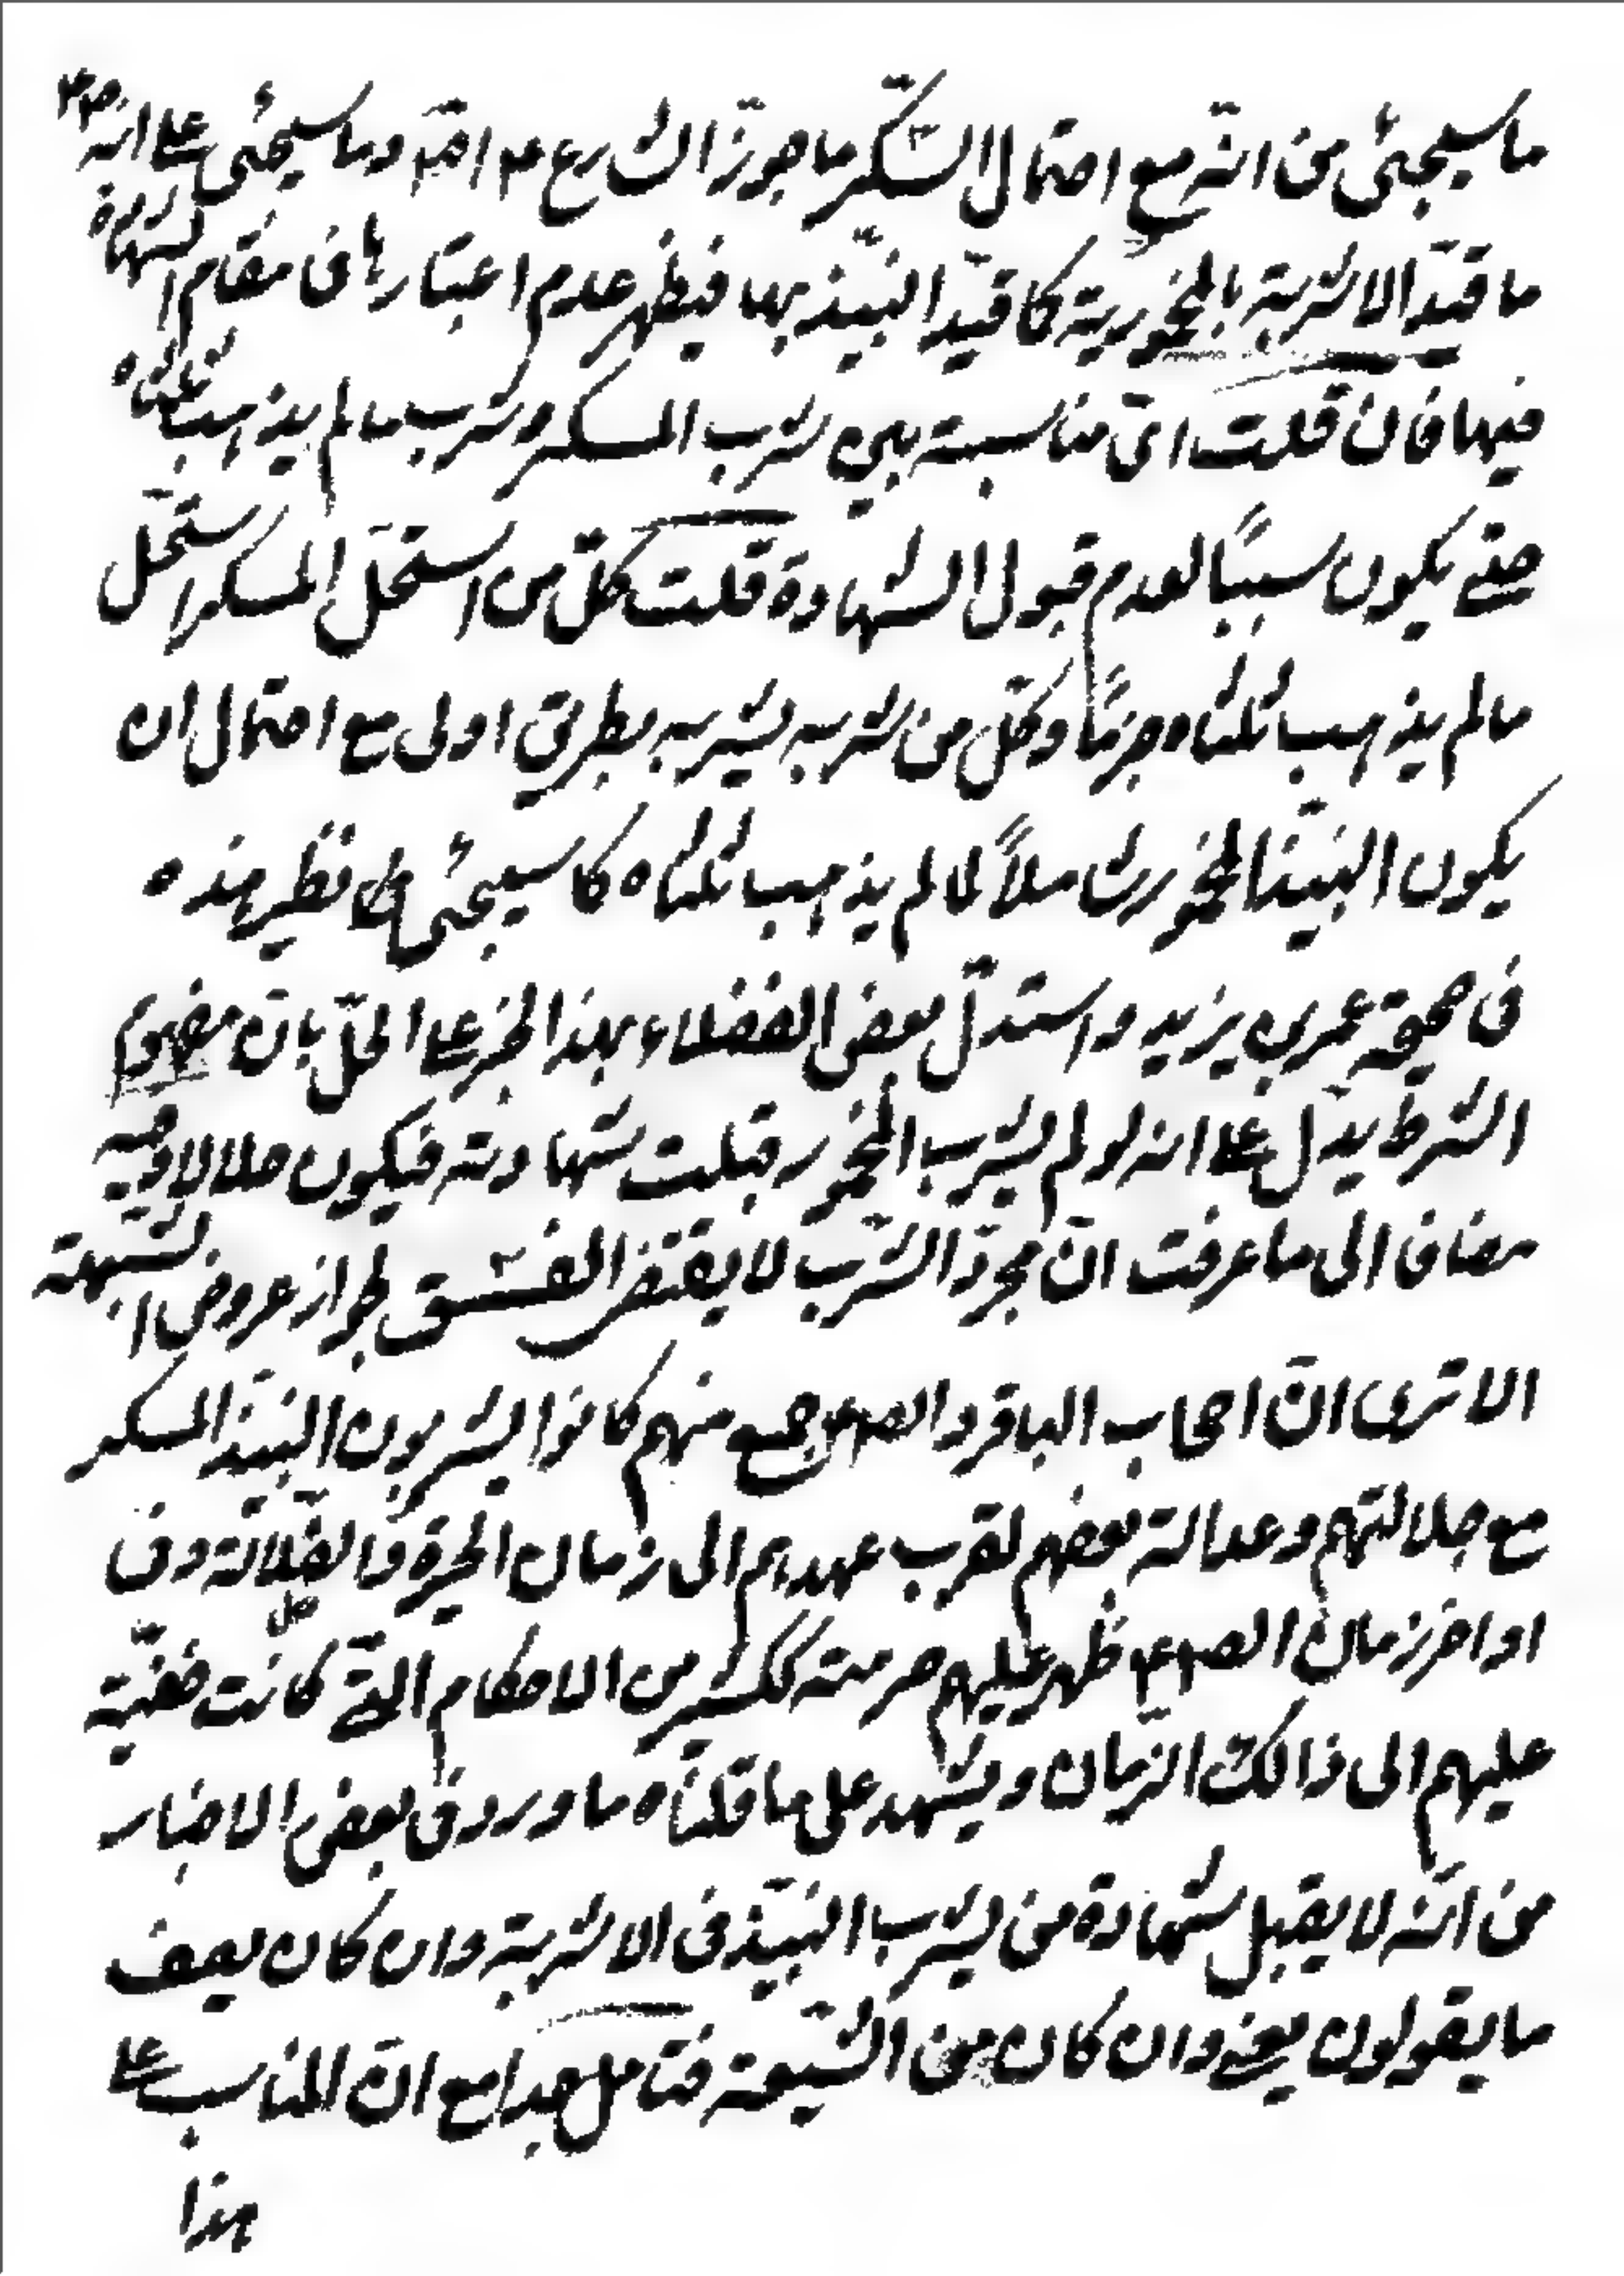 ما سيجئ من انّه مع احتمال السّكر ما جوّز الشارع ع ا وما سيجئ على انه ع
ما قيّد الاشربة بالمخمورية كما قيّد النبيّذ بها فيظهر عدم اعتبارها في مقام الشهادة
فيها فان قلت اىّ مناسبة بين شرب المسكر وشرب مالم يذهب ثلثاه
حتى يكون سببًا لعدم قبول الشهادة قلت كلّ من استحلّ المسكر استحلّ
مالم يذهب ثلثاه جزمًا وكلّ من شربه يشربه بطريق اولى مع احتمال ان
يكون النبيّذ المخمور شاملاً لما لم يذهب ثلثاه كما سيجئ نظير هذه
فى صحيحة عمر بن يزيد واستدلّ بعض الفضلاء بهذا الخبر على الحلّ بانّ مفهوم
الشرط يدّل على انه لو لم يشرب المخمور قبلت شهادته فيكون حلالا وفيه
مضافا الى ما عرفت انّ مجرّد الشّرب لا يقتضى الفسق لجواز عروض الشبهة
الا ترى انّ اصحاب الباقر والص ع جمع منهم كانوا يشربون النبيّذ المسكر
مع جلالتهم وعدالة بعضهم لقرب عهدهم الى زمان الحيرة والضّلالة وفى
اواخر زمان الص ع ظهر عليهم حرمته ككثير من الاحكام الّتى كانت خفيّة
عليهم الى ذالك الزّمان ويشهد على ما قلناه ما ورد فى بعض الاخبار
من انّه لا يقبل شهادة من يشرب النبيّذ فى الاشربة وان كان يصف
ما يقولون يعنى وان كان من الشّيعة فتامل جدا مع انّ المناسب على
هذا